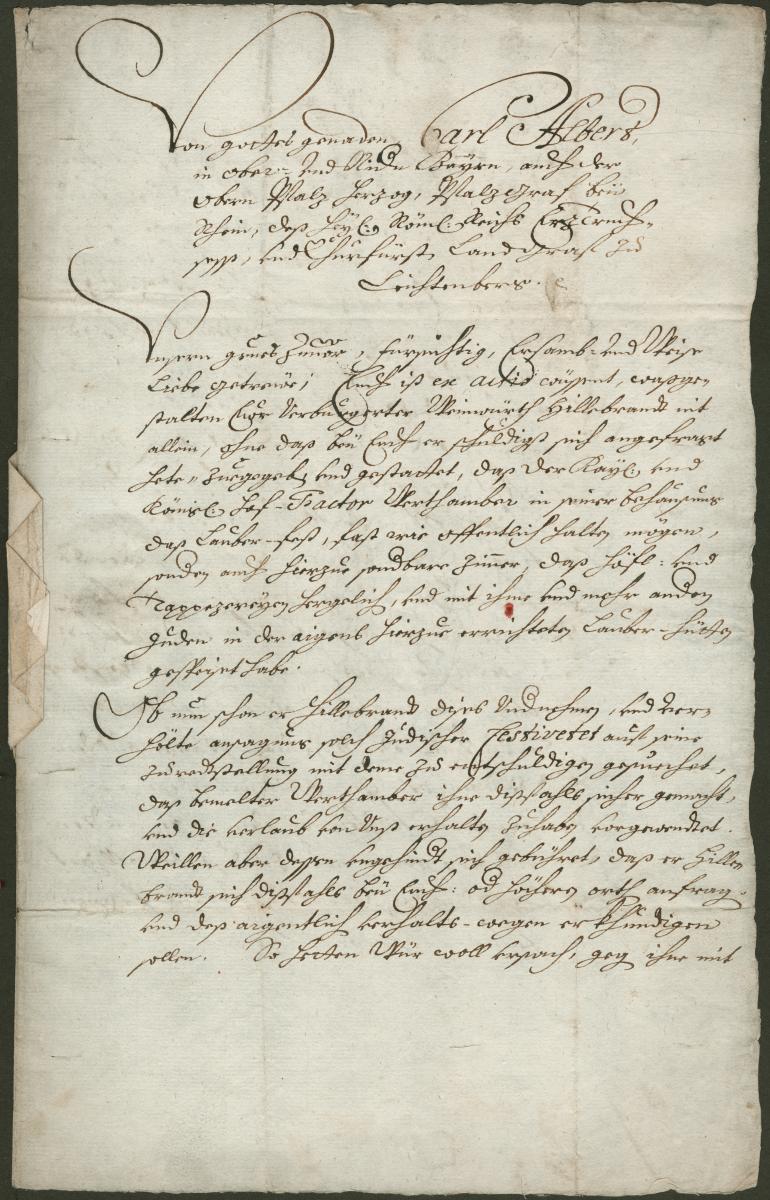 Von gottes genaden Carl Albert,
in ober- und Nidern Bayrn, auch der
obern Pfalz Herzog, Pfalzgraf beü
Rhein, deß Heyl: Röml: Reichs Erztruch-
seß, und Churfürst, Landgraf zu
Leichtenberg.
Unsern grues zuvor, fürsichtig, Ersamb- und Weise
Liebe getreue; Euch ist ex actis wüssent, wasge-
stalten Eur Verburgerter Weinwürth Hillebrandt nit
allein, ohne daß beü Euch er schuldigst sich angefragt
hete, zuegegeben und gestattet, daß der Kayl: und
Königl: Hof-Factor Werthamber in seiner behausung
daß Lauber-Fest, fast wie offentlich halten mögen,
sondern auch hierzue sondbare Zimmer, daß Höfl: und
Tappezereyen hergelich, und mit ihme und mehr andern
Juden in der aigens hierzue errichteten Lauber-Hütten
gespeiset habe.
Ob nun schon er Hillebrandt dises Undernehmen, und ver-
hölte ansagung solch Jüdischer Festivetet auf seine
zuredtstellung mit deme zu entschuldigen gesuechet,
daß bemelter Werthamber ihne dißfahls sicher gemacht,
und die verlaub von Unß erhalten zuhaben vorgewendtet.
Weillen aber dessen ungehindt sich gebühret, daß er Hille-
brandt sich dißfahls beü Euch: od höhern orth anfrag-
und deß aigentlich verhalts-wegen erkhundigen
sollen. So hetten Wür woll ursach, geg ihne mit